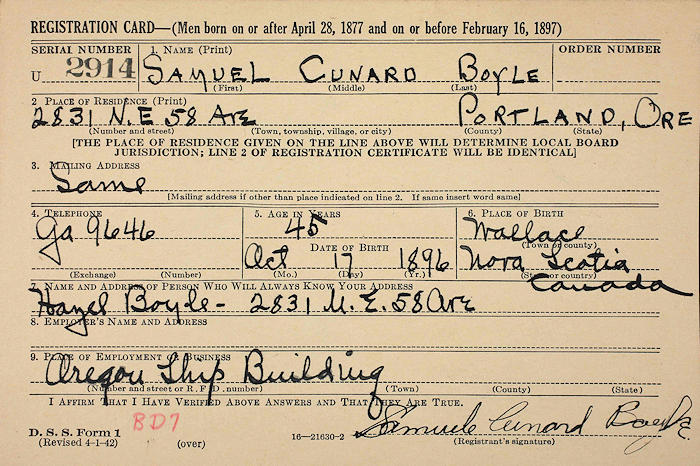 REGISTRATION CARD—(Men born on or after April 28, 1877 and on or before February 16, 1897)
SERIAL NUMBER 1. NAME (Print) ORDER NUMBER
U 2914 SAMUEL CUNARD BOYLE
(First) (Middle) (Last)
2 PLACE OF RESIDENCE (Print)
2831 N.E 58 Ave PORTLAND, ORE
(Number and street) (Town, township, village, or city) (County) (State)
[THE PLACE OF RESIDENCE GIVEN ON THE LINE ABOVE WILL DETERMINE LOCAL BOARD
JURISDICTION; LINE 2 OF REGISTRATION CERTIFICATE WILL BE IDENTICAL]
3. MAILING ADDRESS
Same
[Mailing address if other than place indicated on line 2. If same insert word same]
4. TELEPHONE 5. AGE IN YEARS 6. PLACE OF BIRTH
Ga 9646 45 Wallace
DATE OF BIRTH (Town or county)
Oct 17 1896 Nova Scotia
(Exchange) (Number) (Mo.) (Day) (Yr.) (State or country)
Canada
7. NAME AND ADDRESS OF PERSON WHO WILL ALWAYS KNOW YOUR ADDRESS
Hazel Boyle - 2831 N.E. 58 Ave
8. EMPLOYER'S NAME AND ADDRESS
9. PLACE OF EMPLOYMENT OR BUSINESS
Oregon Ship Building
(Number and street or R. F. D. number) (Town) (County) (State)
I AFFIRM THAT I HAVE VERIFIED ABOVE ANSWERS AND THAT THEY ARE TRUE.
BD7
Samuel Cunard Boyle
D. S. S. Form 1
(Revised 4-1-42) (over) 16—21630-2 (Registrant's signature)